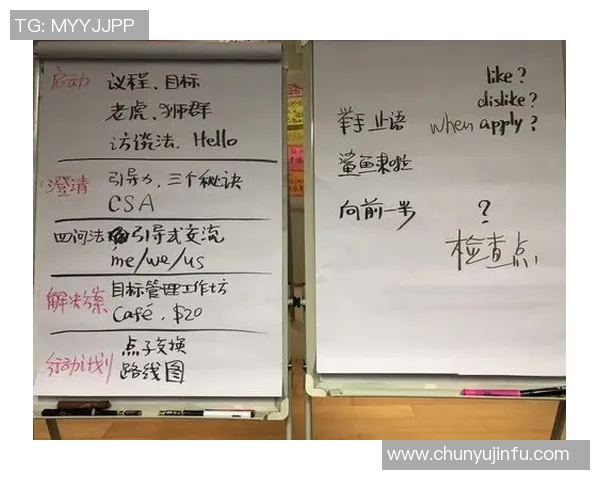 TG: MYYJJPP
启动 议程、目标
老虎、狮群
访谈法、Hello
澄清 引导力,三个秘诀
CSA
四问法 引导式交流
me/we/us
解决方案 目标管理工作坊
Café, $20
行动计划 点子交换
路线图
like?
dislike?
举手止语 when apply?
鲨鱼来啦
向前一步 ?
检查点
www.chunyujinfu.com